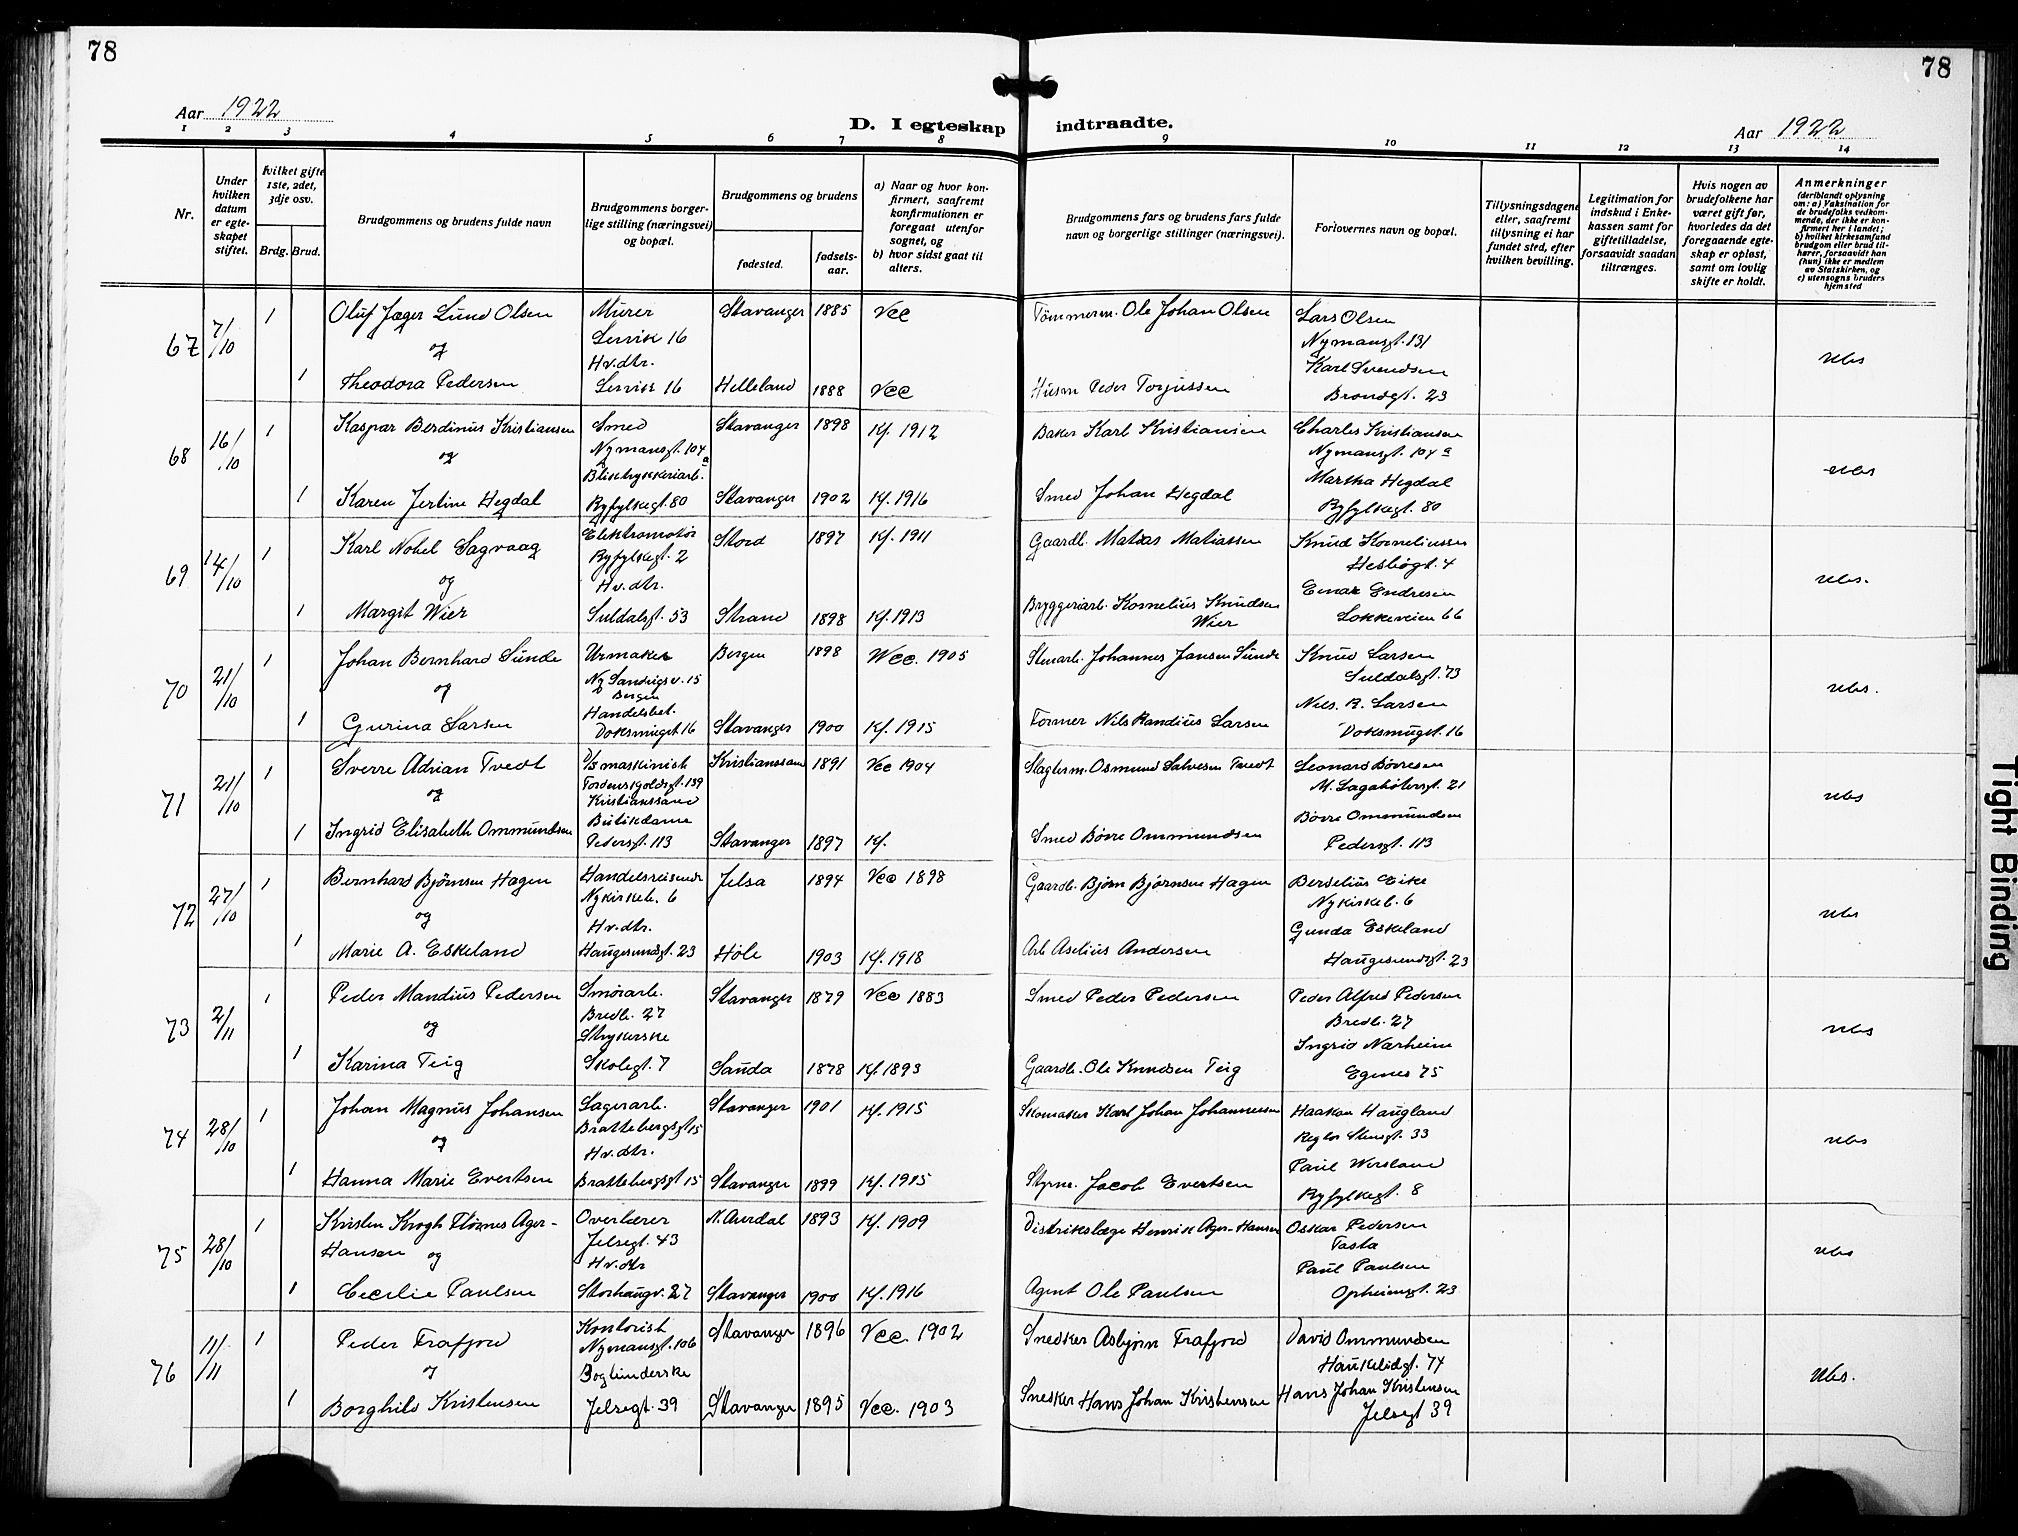 78
78
Aar 1922
D. I egteskap indtraadte.
Aar 1922
1 2 3 4 5 6 7 8 9 10 11 12 13 14
Nr.
Under hvilken datum er egteskapet stiftet.
hvilket gifte 1ste, 2det, 3dje osv.
Brdg. Brud.
Brudgommens og brudens fulde navn
Brudgommens borgerlige stilling (næringsvei) og bopæl.
Brudgommens og brudens
fødested.
fødselsaar.
a) Naar og hvor konfirmert, saafremt konfirmationen er foregaat utenfor sognet, og
b) hvor sidst gaat til alters.
Brudgommens fars og brudens fars fulde navn og borgerlige stillinger (næringsvei).
Forlovernes navn og bopæl.
Tillysningsdagene eller, saafremt tillysning ei har fundet sted, efter hvilken bevilling.
Legitimation for indskud i Enkekassen samt for giftetilladelse, forsaavidt saadan tiltrænges.
Hvis nogen av brudefolkene har været gift før, hvorledes da det foregaaende egteskap er opløst, samt om lovlig skifte er holdt.
Anmerkninger
(deriblandt oplysning om: a) Vaksination for de brudefolks vedkommende, der ikke er konfirmert her i landet; b) hvilket kirkesamfund brudgom eller brud tilhører, forsaavidt han (hun) ikke er medlem av Statskirken, og c) utensogns bruders hjemsted
67 7/10 1 Oluf Jæger Lund Olsen Murer Stavanger 1885 Vec Tømmerm. Ole Johan Olsen Lars Olsen
og Lervik 16 Nymansgt. 131
Hv.dtr. Karl Svendsen
1 Theodora Pedersen Lervik 16 Helleland 1888 Vec Husm Peder Torjussen Brondgt. 23
68 16/10 1 Kaspar Berdinus Kristiansen Smed Stavanger 1898 Kf. 1912 Baker Karl Kristiansen Charles Kristiansen
og Nymansgt. 104a Nymansgt. 104a
Bliktrykkeriarb. Martha Hegdal
1 Karen Jertine Hegdal Ryfylkegt. 80 Stavanger 1902 Kf. 1916 Smed Johan Hegdal Ryfylkegt. 80
69 14/10 1 Karl Nobel Sagvaag Elektromotor Stord 1897 Kf. 1911 Gaardb. Matias Matiassen Knud Korneliussen
og Ryfylkegt. 2 Hesbøgt. 4
Hv.dtr. Einar Endresen
1 Margit Wier Suldalsgt. 53 Strand 1898 Kf. 1913 Bryggeriarb. Kornelius Knudsen Wier Løkkeveien 66
70 21/10 1 Johan Bernhard Sunde Urmaker Bergen 1898 Vec. 1905 Stenarb. Johannes Jansen Sunde Knud Larsen
og Ny Sandvigsv. 15 Bergen Suldalsgt. 73
Handelsbet. Nils. R. Larsen
1 Gurina Larsen Doksmuget 16 Stavanger 1900 Kf. 1915 Former Nils Randius Larsen Doksmuget. 16
71 21/10 1 Sverre Adrian Tvedt D/s maskinist Kristianssand 1891 Vec 1904 Slagterm. Osmund Salvesen Tvedt Leonard Børresen
og Tordenskjoldsgt. 139 Kristianssand M. Lagabøtersgt. 21
Butikdame Børre Ommundsen
1 Ingrid Elisabeth Ommundsen Pedersgt. 113 Stavanger 1897 Kf. Smed Børre Ommundsen Pedersgt. 113
72 27/10 1 Bernhard Bjørnsen Hagen Handelsreisende Jelsa 1894 Vec 1898 Gaardb. Bjørn Bjørnsen Hagen Berdelius Eike
og Nykirkeb. 6 Nykirkeb. 6
Hv.dtr. Gunda Eskeland
1 Marie A. Eskeland Haugesundsgt. 23 Høle 1903 Kf. 1918 Arb Aselius Andersen Haugesundsgt. 23
73 2/11 1 Peder Mandius Pedersen Smørarb. Stavanger 1879 Vec 1883 Smed Peder Pedersen Peder Alfred Pedersen
og Bredb. 27 Bredb. 27
Strykerske Ingrid Nærheim
1 Karina Teig Skolegt. 7 Sauda 1878 Kf. 1893 Gaardb. Ole Knudsen Teig Egenes 75
74 28/10 1 Johan Magnus Johansen Lagerarb. Stavanger 1901 Kf. 1915 Skomaker Karl Johan Johannessen Haakon Haugland
og Brattebergsgt 15 33
Hv.dtr. Paul Versland
1 Hanna Marie Evertsen Brattebergsgt 15 Stavanger 1899 Kf. 1915 Styrm. Jacob Evertsen Ryfylkegt. 8
75 28/10 1 Kristen Krogh Fløxnes Ager-Hansen Overlærer N. Aurdal 1893 Kf. 1909 Distrikslæge Henrik Ager-Hansen Oskar Pedersen
og Jelsegt. 43 Tasta
Hv.dtr Paul Paulsen
1 Cecilie Paulsen Storhaugv. 27 Stavanger 1900 Kf. 1916 Agent Ole Paulsen Opheimsgt. 23
76 11/11 1 Peder Frafjord Kontorist Stavanger 1896 Vec. 1902 Snedker Asbjørn Frafjord David Ommundsen
og Nymansgt. 106 Haukelidgt. 74
Bogbinderske Hans Johan Kristensen
1 Borghild Kristensen Jelsegt. 39 Stavanger 1895 Vec. 1903 Snedker Hans Johan Kristensen Jelsegt 39
Tight Binding